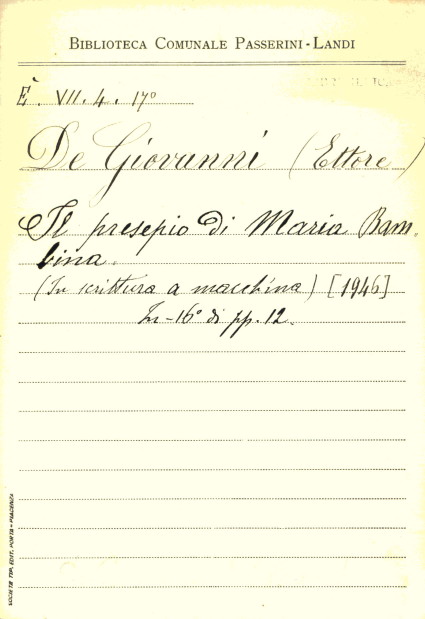 BIBLIOTECA COMUNALE PASSERINI-LANDI
È. VII. 4. 17º
De Giovanni (Ettore)
Il presepio di Maria Bam-
bina.
(In scrittura a macchina) [1946]
In-16º di pp. 12.
SOCIETÀ TIP. EDIT. PORTA - PIACENZA